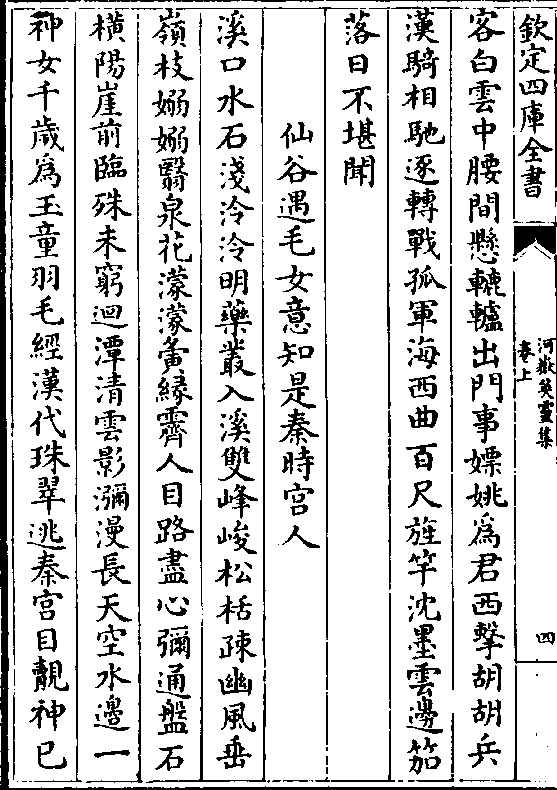 欽定四庫全書
河嶽英靈集
卷上
四
客白雲中腰間懸轆轤出門事嫖姚為君西擊胡胡兵
漢騎相馳逐轉戰孤軍海西曲百尺旌竿沈墨雲邊笳
落日不堪聞
仙谷遇毛女意知是秦時宮人
溪口水石淺泠泠明藥叢入溪雙峰峻松栝疎幽風垂
嶺枝嫋嫋翳泉花濛濛夤緣霽人目路盡心彌通盤石
橫陽崖前臨殊未窮迴潭清雲影瀰漫長天空水邊一
神女千歲為玉童羽毛經漢代珠翠逃秦宮目覿神已